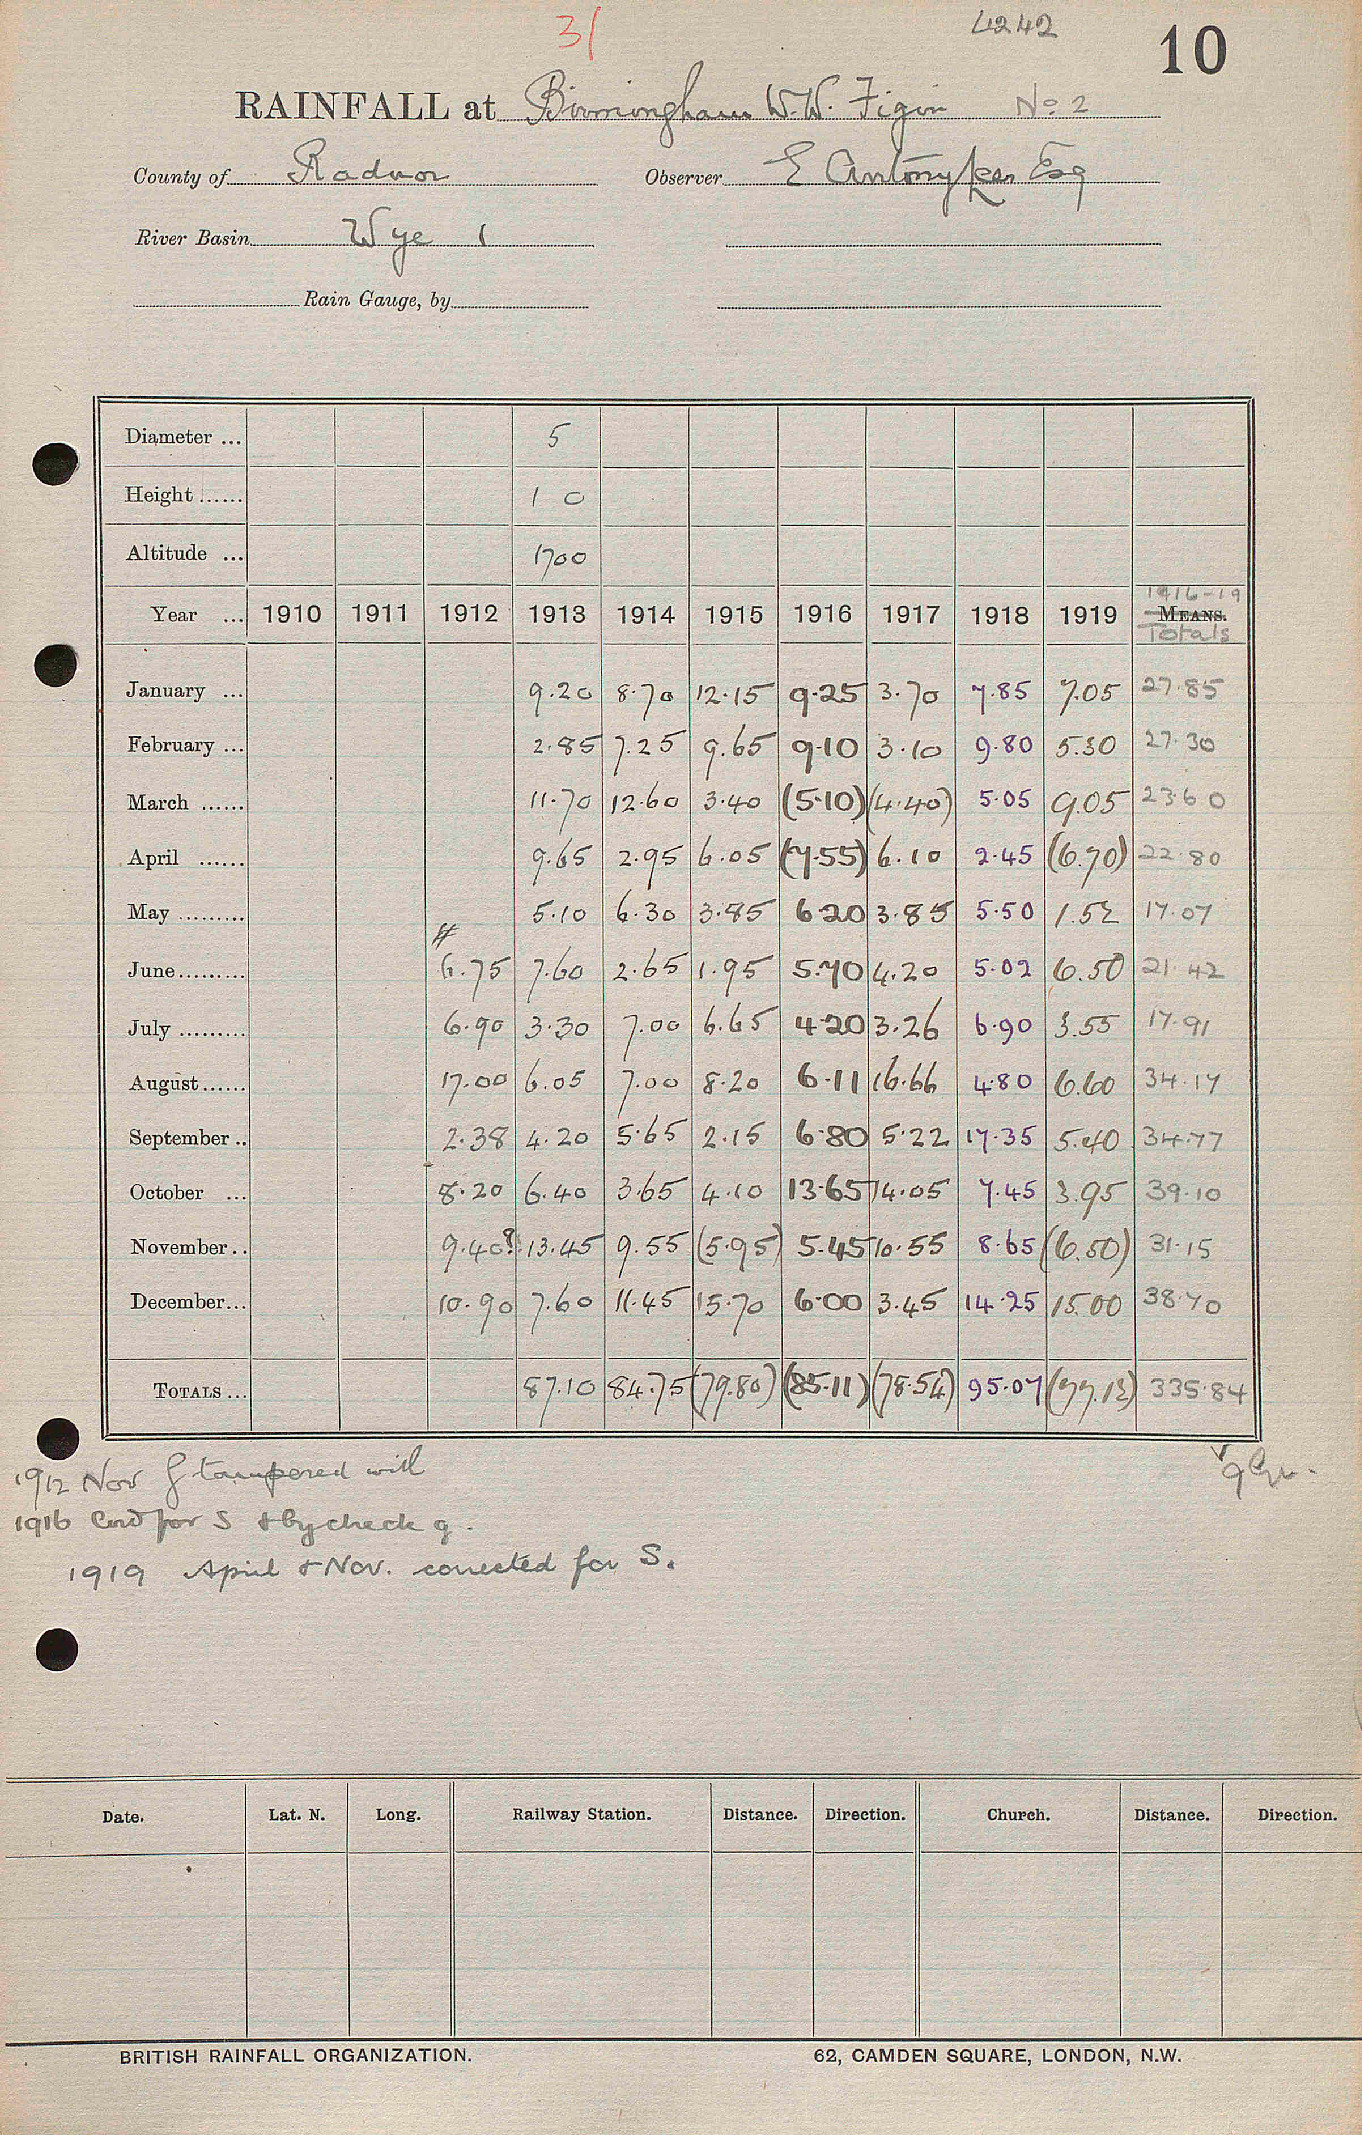 31
4242
10
RAINFALL at Birmingham W.W. Figin No 2
County of Radnor Observer E Antonyker Esq
River Basin Wye 1
Rain Gauge, by
Diameter ... 5
Height ...... 1 0
Altitude ... 1700
Year ... 1910 1911 1912 1913 1914 1915 1916 1917 1918 1919 1916-19 MEANS. Totals
January ... 9.20 8.70 12.15 9.25 3.70 7.85 7.05 27.85
February ... 2.85 7.25 9.65 9.10 3.10 9.80 5.30 27.30
March ...... 11.70 12.60 3.40 (5.10) (4.40) 5.05 9.05 23.60
April ...... 9.65 2.95 6.05 (7.55) 6.10 2.45 (6.70) 22.80
May ......... 5.10 6.30 3.85 6.20 3.85 5.50 1.52 17.07
June......... # 6.75 7.60 2.65 1.95 5.70 4.20 5.02 6.50 21.42
July ......... 6.90 3.30 7.00 6.65 4.20 3.26 6.90 3.55 17.91
August...... 17.00 6.05 7.00 8.20 6.11 16.66 4.80 6.60 34.17
September .. 2.38 4.20 5.65 2.15 6.80 5.22 17.35 5.40 34.77
October ... 8.20 6.40 3.65 4.10 13.65 14.05 7.45 3.95 39.10
November .. 9.40? 13.45 9.55 (5.95) 5.45 10.55 8.65 (6.50) 31.15
December... 10.90 7.60 11.45 15.70 6.00 3.45 14.25 15.00 38.70
TOTALS ... 87.10 84.75 (79.80) (85.11) (78.54) 95.07 (77.12) 335.84
1912 Nov G tampered with
1916 Cord for S & by check g.
1919 April & Nov. corrected for S.
Date. Lat. N. Long. Railway Station. Distance. Direction. Church. Distance. Direction.
BRITISH RAINFALL ORGANIZATION. 62, CAMDEN SQUARE, LONDON, N.W.